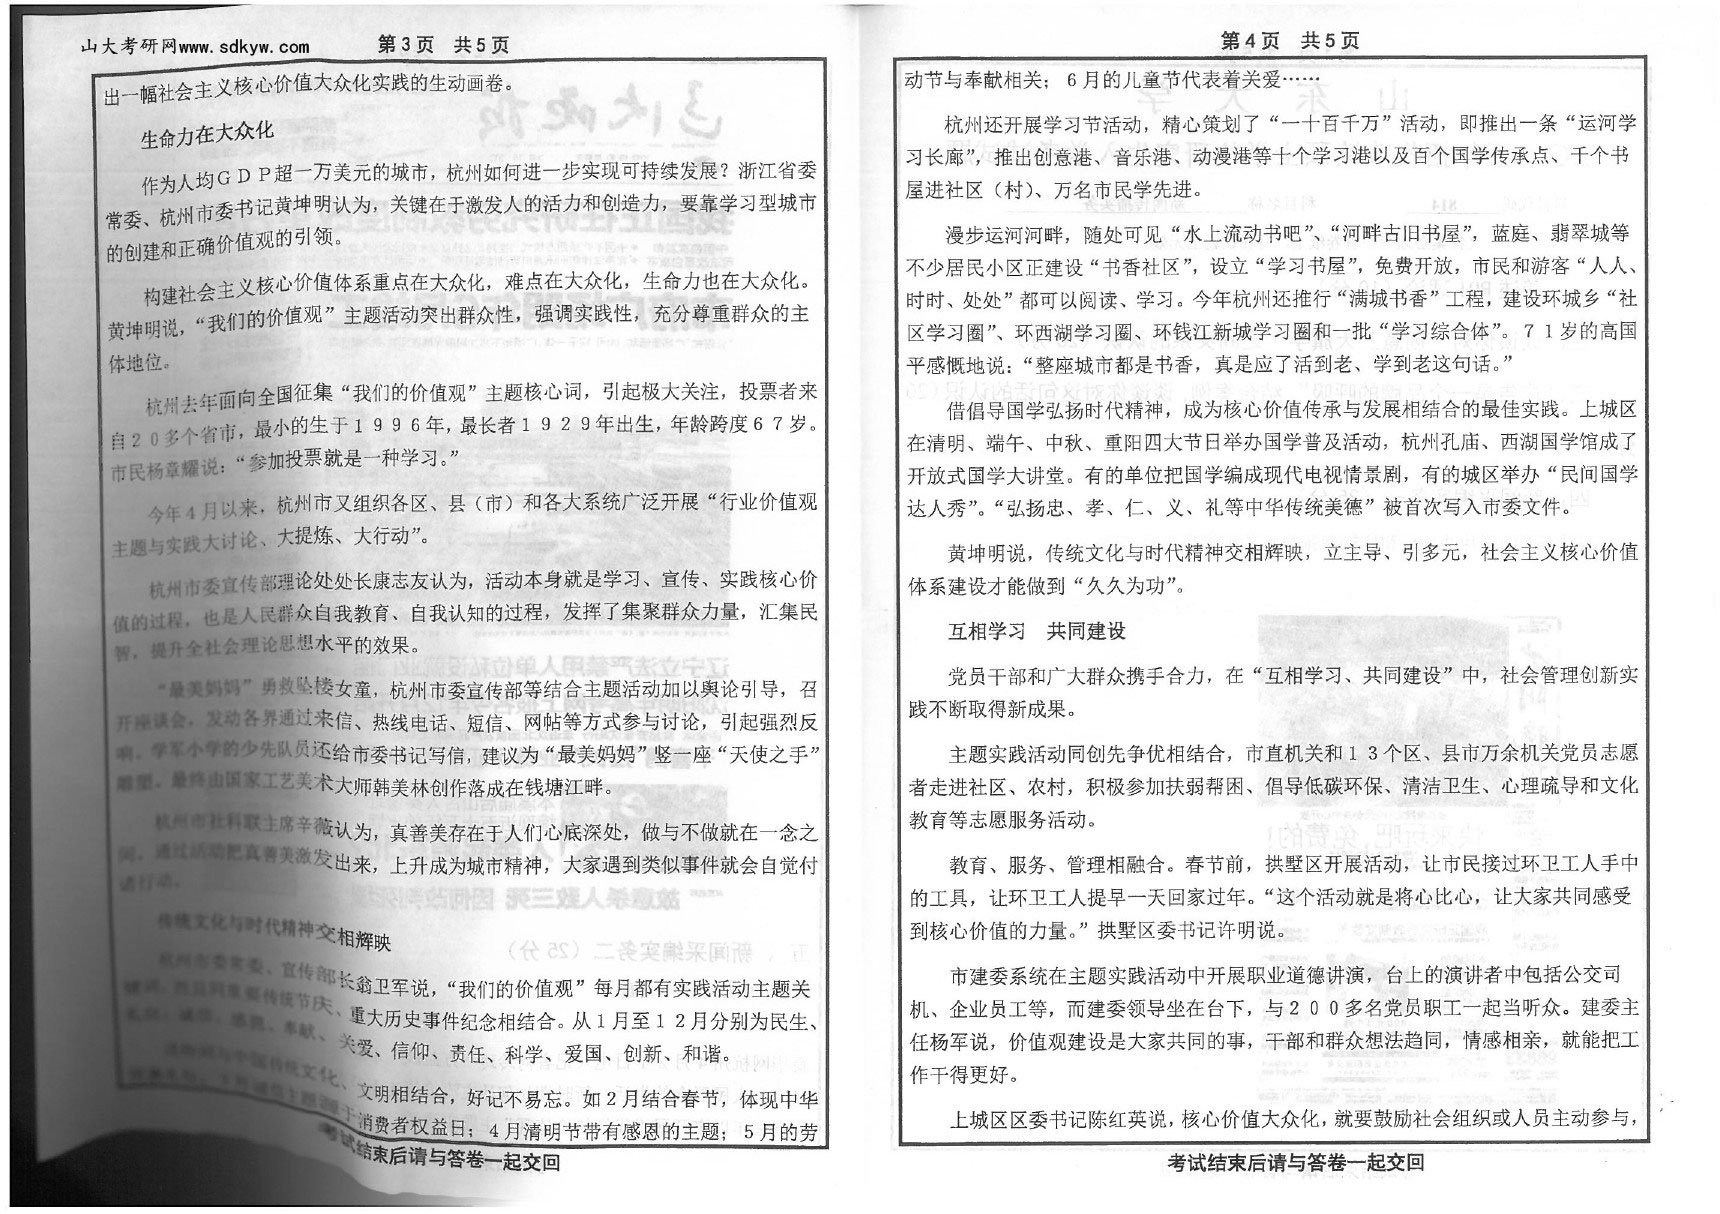 山大考研网www.sdkyw.com
第3页 共5页
出一幅社会主义核心价值大众化实践的生动画卷。
生命力在大众化
作为人均GDP超一万美元的城市，杭州如何进一步实现可持续发展？浙江省委
常委、杭州市委书记黄坤明认为，关键在于激发人的活力和创造力，要靠学习型城市
的创建和正确价值观的引领。
构建社会主义核心价值体系重点在大众化，难点在大众化，生命力也在大众化。
黄坤明说，“我们的价值观”主题活动突出群众性，强调实践性，充分尊重群众的主
体地位。
杭州去年面向全国征集“我们的价值观”主题核心词，引起极大关注，投票者来
自20多个省市，最小的生于1996年，最长者1929年出生，年龄跨度67岁。
市民杨章耀说：“参加投票就是一种学习。”
今年4月以来，杭州市又组织各区、县（市）和各大系统广泛开展“行业价值观
主题与实践大讨论、大提炼、大行动”。
杭州市委宣传部理论处处长康志友认为，活动本身就是学习、宣传、实践核心价
值的过程，也是人民群众自我教育、自我认知的过程，发挥了集聚群众力量，汇集民
智，提升全社会理论思想水平的效果。
“最美妈妈”勇救坠楼女童，杭州市委宣传部等结合主题活动加以舆论引导，召
开座谈会，发动各界通过来信、热线电话、短信、网帖等方式参与讨论，引起强烈反
响。学军小学的少先队员还给市委书记写信，建议为“最美妈妈”竖一座“天使之手”
雕塑。最终由国家工艺美术大师韩美林创作落成在钱塘江畔。
杭州市社科联主席辛薇认为，真善美存在于人们心底深处，做与不做就在一念之
间。通过活动把真善美激发出来，上升成为城市精神，大家遇到类似事件就会自觉付
诸行动。
传统文化与时代精神交相辉映
杭州市委常委、宣传部长翁卫军说，“我们的价值观”每月都有实践活动主题关
键词，重大历史事件纪念相结合。从1月至12月分别为民生、
感恩、奉献、关爱、信仰、责任、科学、爱国、创新、和谐。
文明相结合，好记不易忘。如2月结合春节，体现中华
消费者权益日；4月清明节带有感恩的主题；5月的劳
考试结束后请与答卷一起交回
第4页 共5页
动节与奉献相关；6月的儿童节代表着关爱……
杭州还开展学习节活动，精心策划了“一十百千万”活动，即推出一条“运河学
习长廊”，推出创意港、音乐港、动漫港等十个学习港以及百个国学传承点、千个书
屋进社区（村）、万名市民学先进。
漫步运河河畔，随处可见“水上流动书吧”、“河畔古旧书屋”，蓝庭、翡翠城等
不少居民小区正建设“书香社区”，设立“学习书屋”，免费开放，市民和游客“人人、
时时、处处”都可以阅读、学习。今年杭州还推行“满城书香”工程，建设环城乡“社
区学习圈”、环西湖学习圈、环钱江新城学习圈和一批“学习综合体”。71岁的高国
平感慨地说：“整座城市都是书香，真是应了活到老、学到老这句话。”
借倡导国学弘扬时代精神，成为核心价值传承与发展相结合的最佳实践。上城区
在清明、端午、中秋、重阳四大节日举办国学普及活动，杭州孔庙、西湖国学馆成了
开放式国学大讲堂。有的单位把国学编成现代电视情景剧，有的城区举办“民间国学
达人秀”。“弘扬忠、孝、仁、义、礼等中华传统美德”被首次写入市委文件。
黄坤明说，传统文化与时代精神交相辉映，立主导、引多元，社会主义核心价值
体系建设才能做到“久久为功”。
互相学习 共同建设
党员干部和广大群众携手合力，在“互相学习、共同建设”中，社会管理创新实
践不断取得新成果。
主题实践活动同创先争优相结合，市直机关和13个区、县市万余机关党员志愿
者走进社区、农村，积极参加扶弱帮困、倡导低碳环保、清洁卫生、心理疏导和文化
教育等志愿服务活动。
教育、服务、管理相融合。春节前，拱墅区开展活动，让市民接过环卫工人手中
的工具，让环卫工人提早一天回家过年。“这个活动就是将心比心，让大家共同感受
到核心价值的力量。”拱墅区委书记许明说。
市建委系统在主题实践活动中开展职业道德讲演，台上的演讲者中包括公交司
机、企业员工等，而建委领导坐在台下，与200多名党员职工一起当听众。建委主
任杨军说，价值观建设是大家共同的事，干部和群众想法趋同，情感相亲，就能把工
作干得更好。
上城区区委书记陈红英说，核心价值大众化，就要鼓励社会组织或人员主动参与，
考试结束后请与答卷一起交回